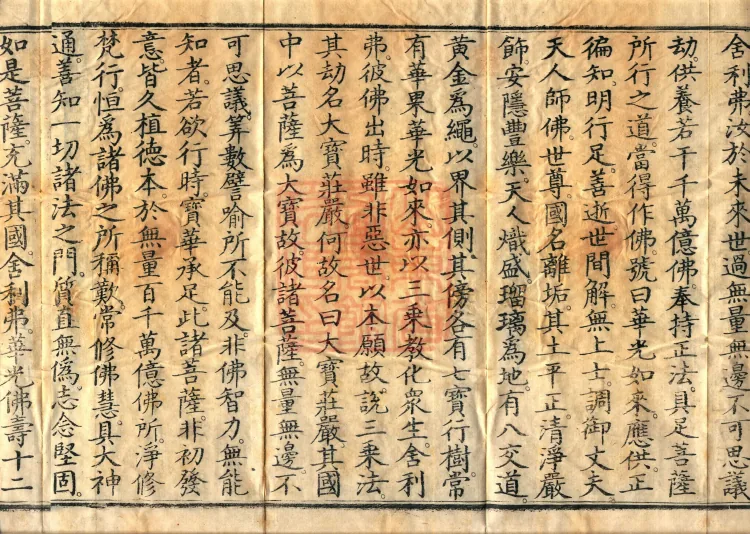 舍利弗。汝於未來世。過無量無邊不可思議
劫。供養若干千萬億佛。奉持正法。具足菩薩
所行之道。當得作佛。號曰華光如來。應供。正
徧知。明行足。善逝。世間解。無上士。調御丈夫。
天人師。佛。世尊。國名離垢。其土平正。清淨嚴
飾。安隱豐樂。天人熾盛。瑠璃爲地。有八交道。
黃金爲繩。以界其側。其傍各有七寶行樹。常
有華果。華光如來。亦以三乘教化衆生。舍利
弗。彼佛出時。雖非惡世。以本願故。說三乘法。
其劫名大寶莊嚴。何故名曰大寶莊嚴。其國
中以菩薩爲大寶故。彼諸菩薩。無量無邊。不
可思議。筭數譬喻所不能及。非佛智力。無能
知者。若欲行時。寶華承足。此諸菩薩。非初發
意。皆久植德本。於無量百千萬億佛所。淨修
梵行。恒爲諸佛之所稱歎。常修佛慧。具大神
通。善知一切諸法之門。質直無僞。志念堅固。
如是菩薩。充滿其國。舍利弗。華光佛壽十二